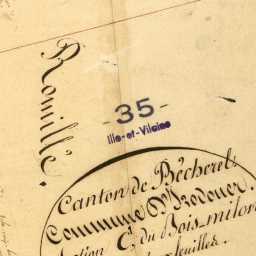 Romillé.
- 35 -
Ille-et-Vilaine
Canton de Bécherel
Commune St Brodouer.
Section C. du Bois-milon
feuilles.